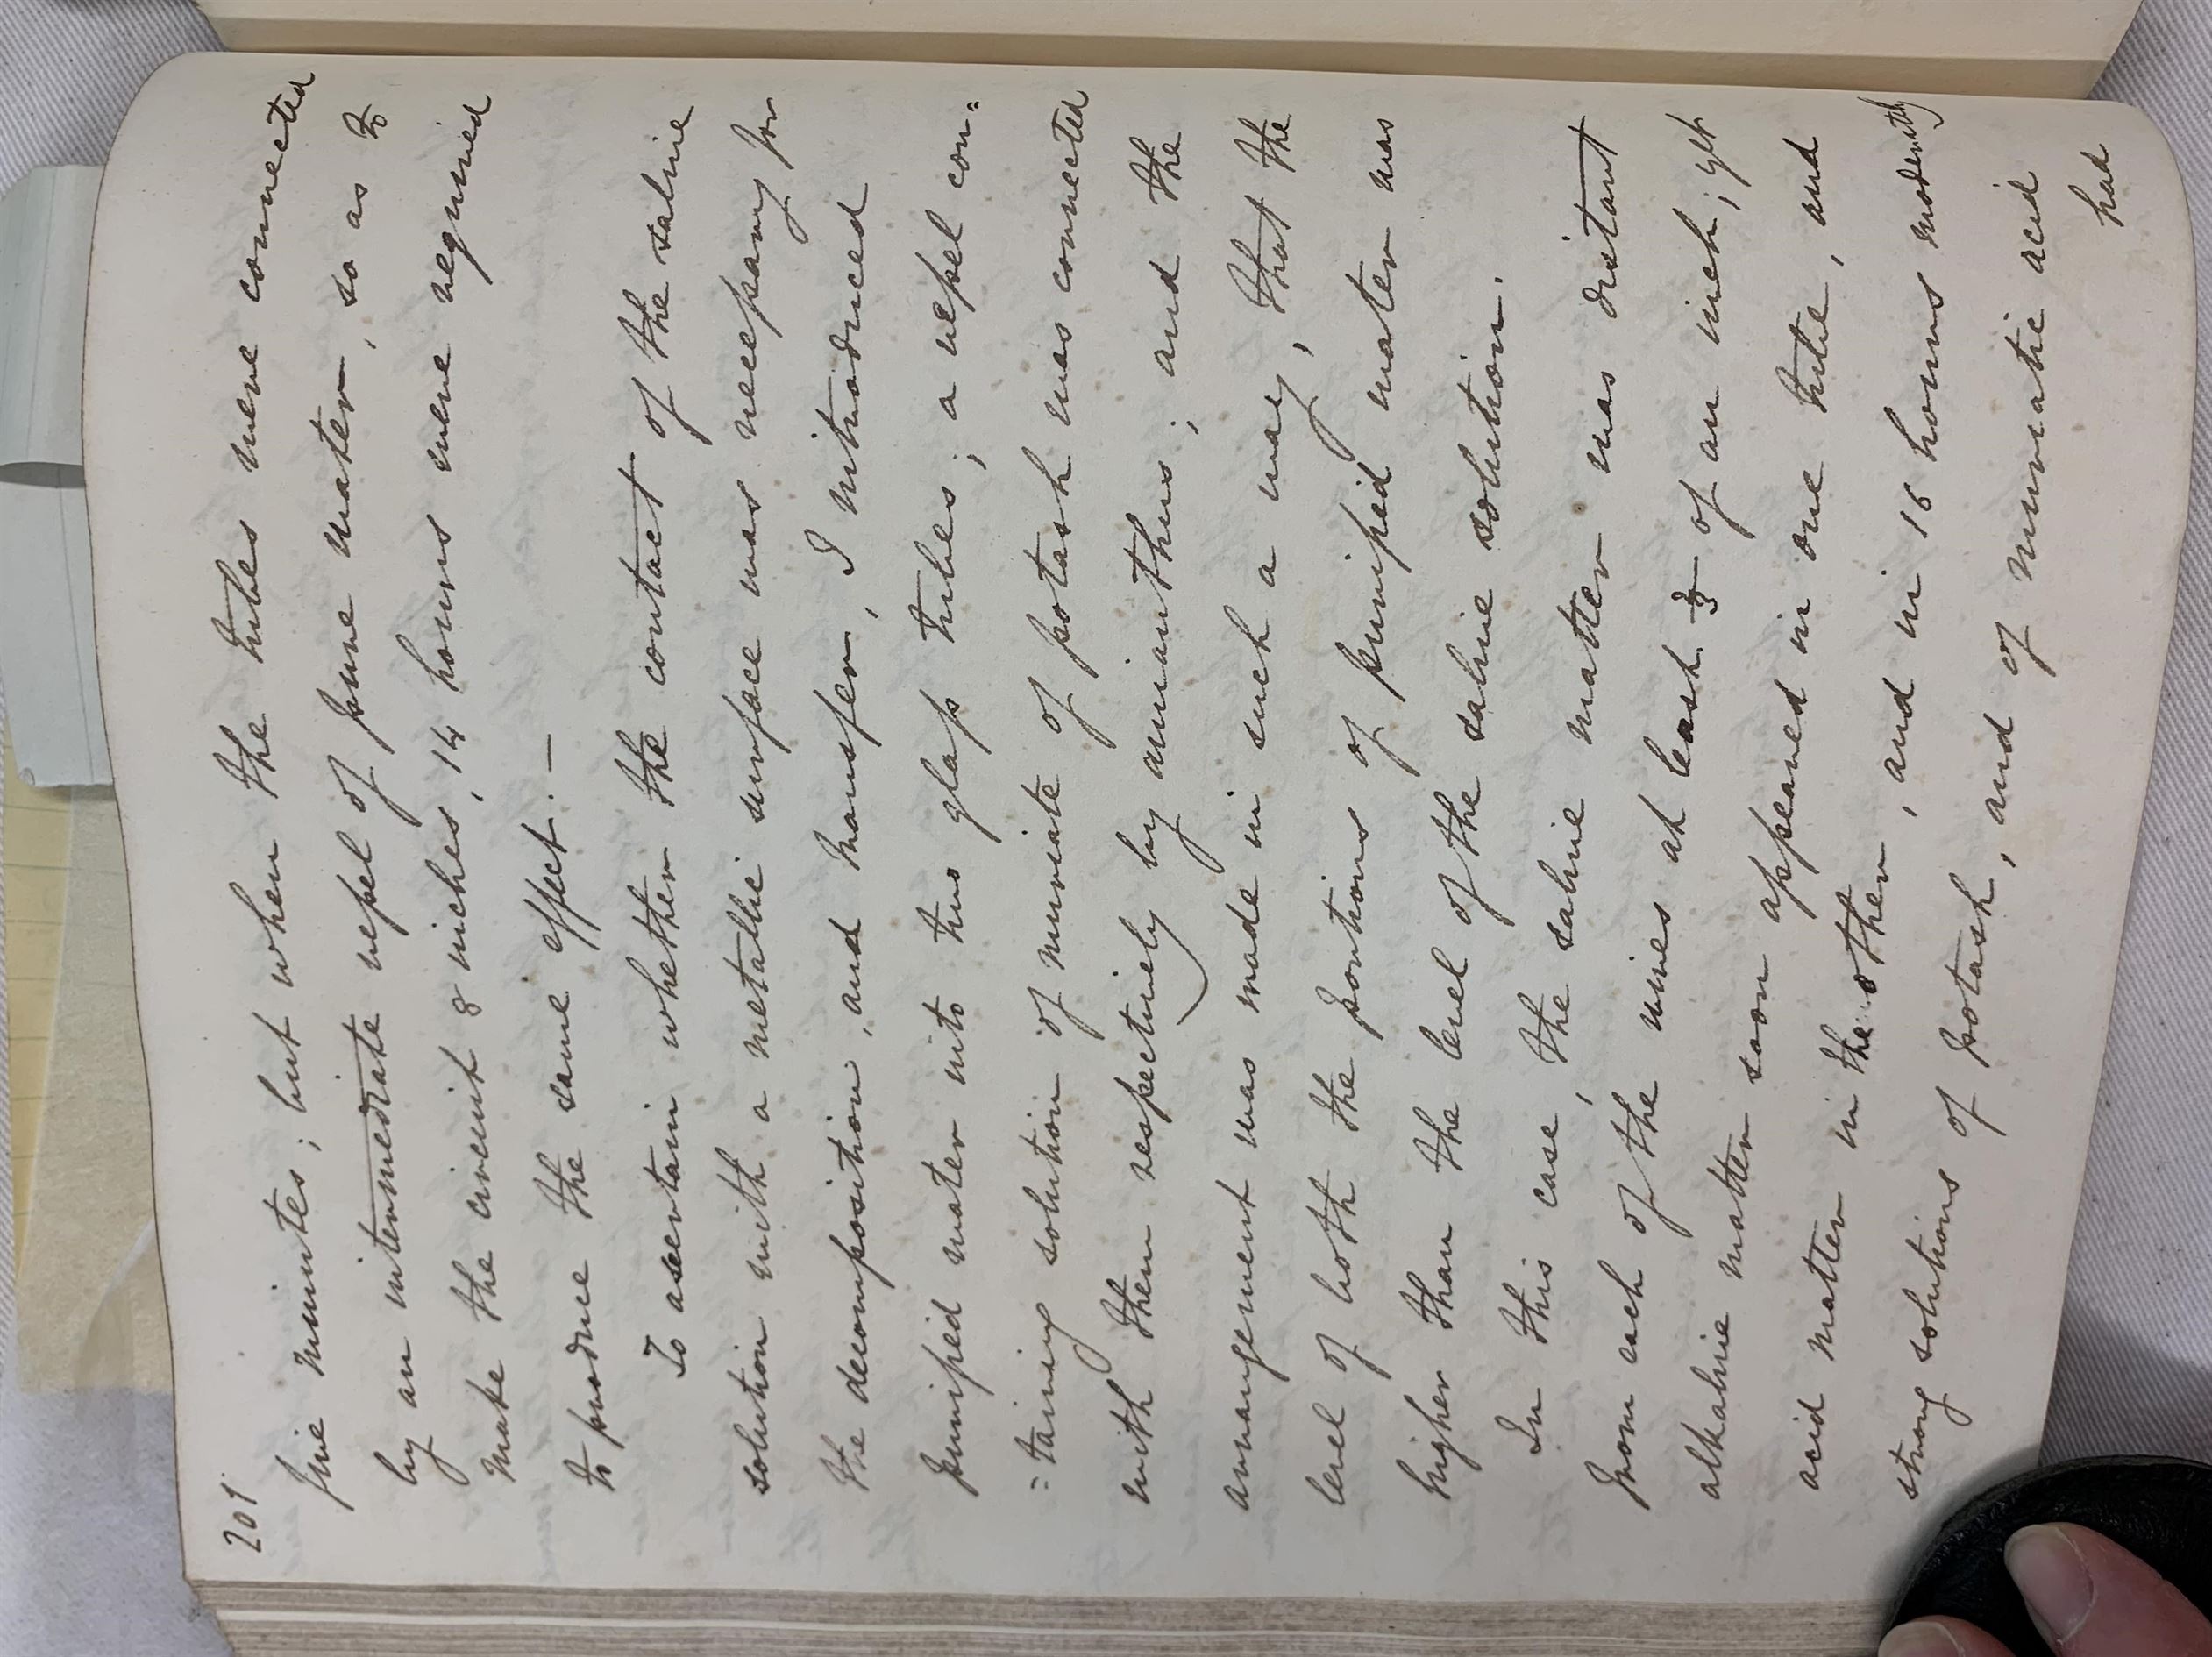 201.
five minutes; but when the tubes were connected
by an intermediate vessel of pure water, so as to
make the circuit 8 inches, 14 hours were required
to produce the same effect. —
To ascertain whether the contact of the saline
solution with a metallic surface was necessary for
the decomposition, and transfer, I introduced
purified water into two glass tubes; a vessel con=
=taining solution of muriate of potash was connected
with them respectively by amianthus; and the
arrangement was made in such a way, that the
level of both the portions of purified water was
higher than the level of the saline solution.
In this case, the saline matter was distant
from each of the wires at least ⅔ of an inch; yet
alkaline matter soon appeared in one tube, and
acid matter in the other, and in 16 hours moderately
strong solutions of potash, and of muriatic acid
had